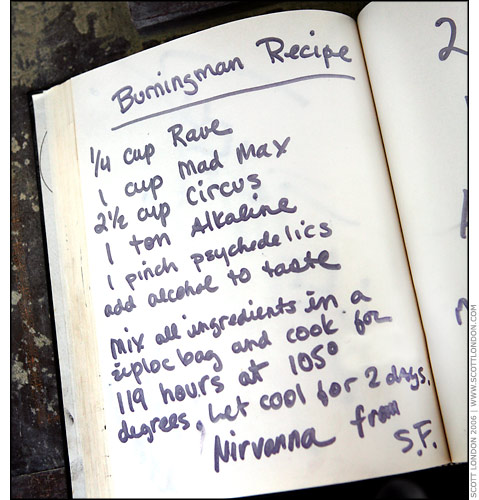 Burningman Recipe
1/4 cup Rave
1 cup Mad Max
2 1/2 cup Circus
1 ton Alkaline
1 pinch psychedelics
add alcohol to taste
Mix all ingredients in a
ziploc bag and cook for
119 hours at 105°
degrees. Let cool for 2 days.
Nirvanna from
S.F.
2
SCOTT LONDON 2006 | WWW.SCOTTLONDON.COM